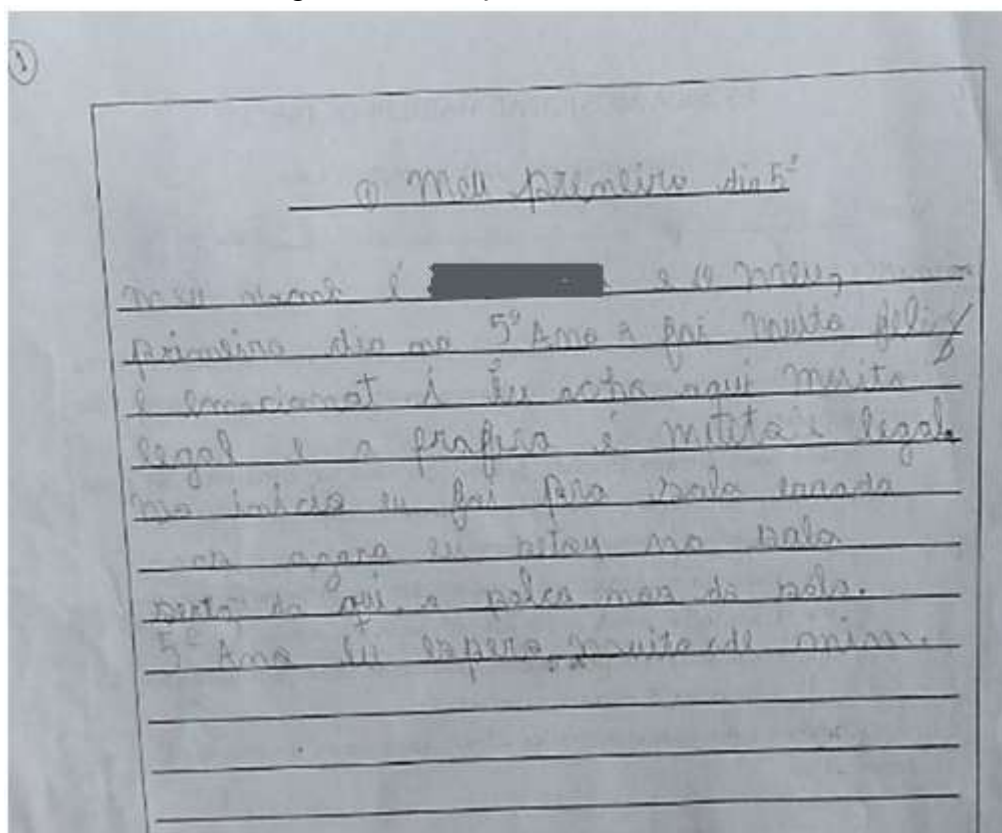 1
O Meu primeiro dia 5º
meu nome é e o meu,
primeiro dia no 5º Ano e foi muito feliz
e emocionat i Eu acho aqui muito
legal e a profesa é muita legal.
no inicio eu foi pra sala errada
agora eu estou na sala
serta da qui. a da sala.
5º Ano Eu espero muito de mim.